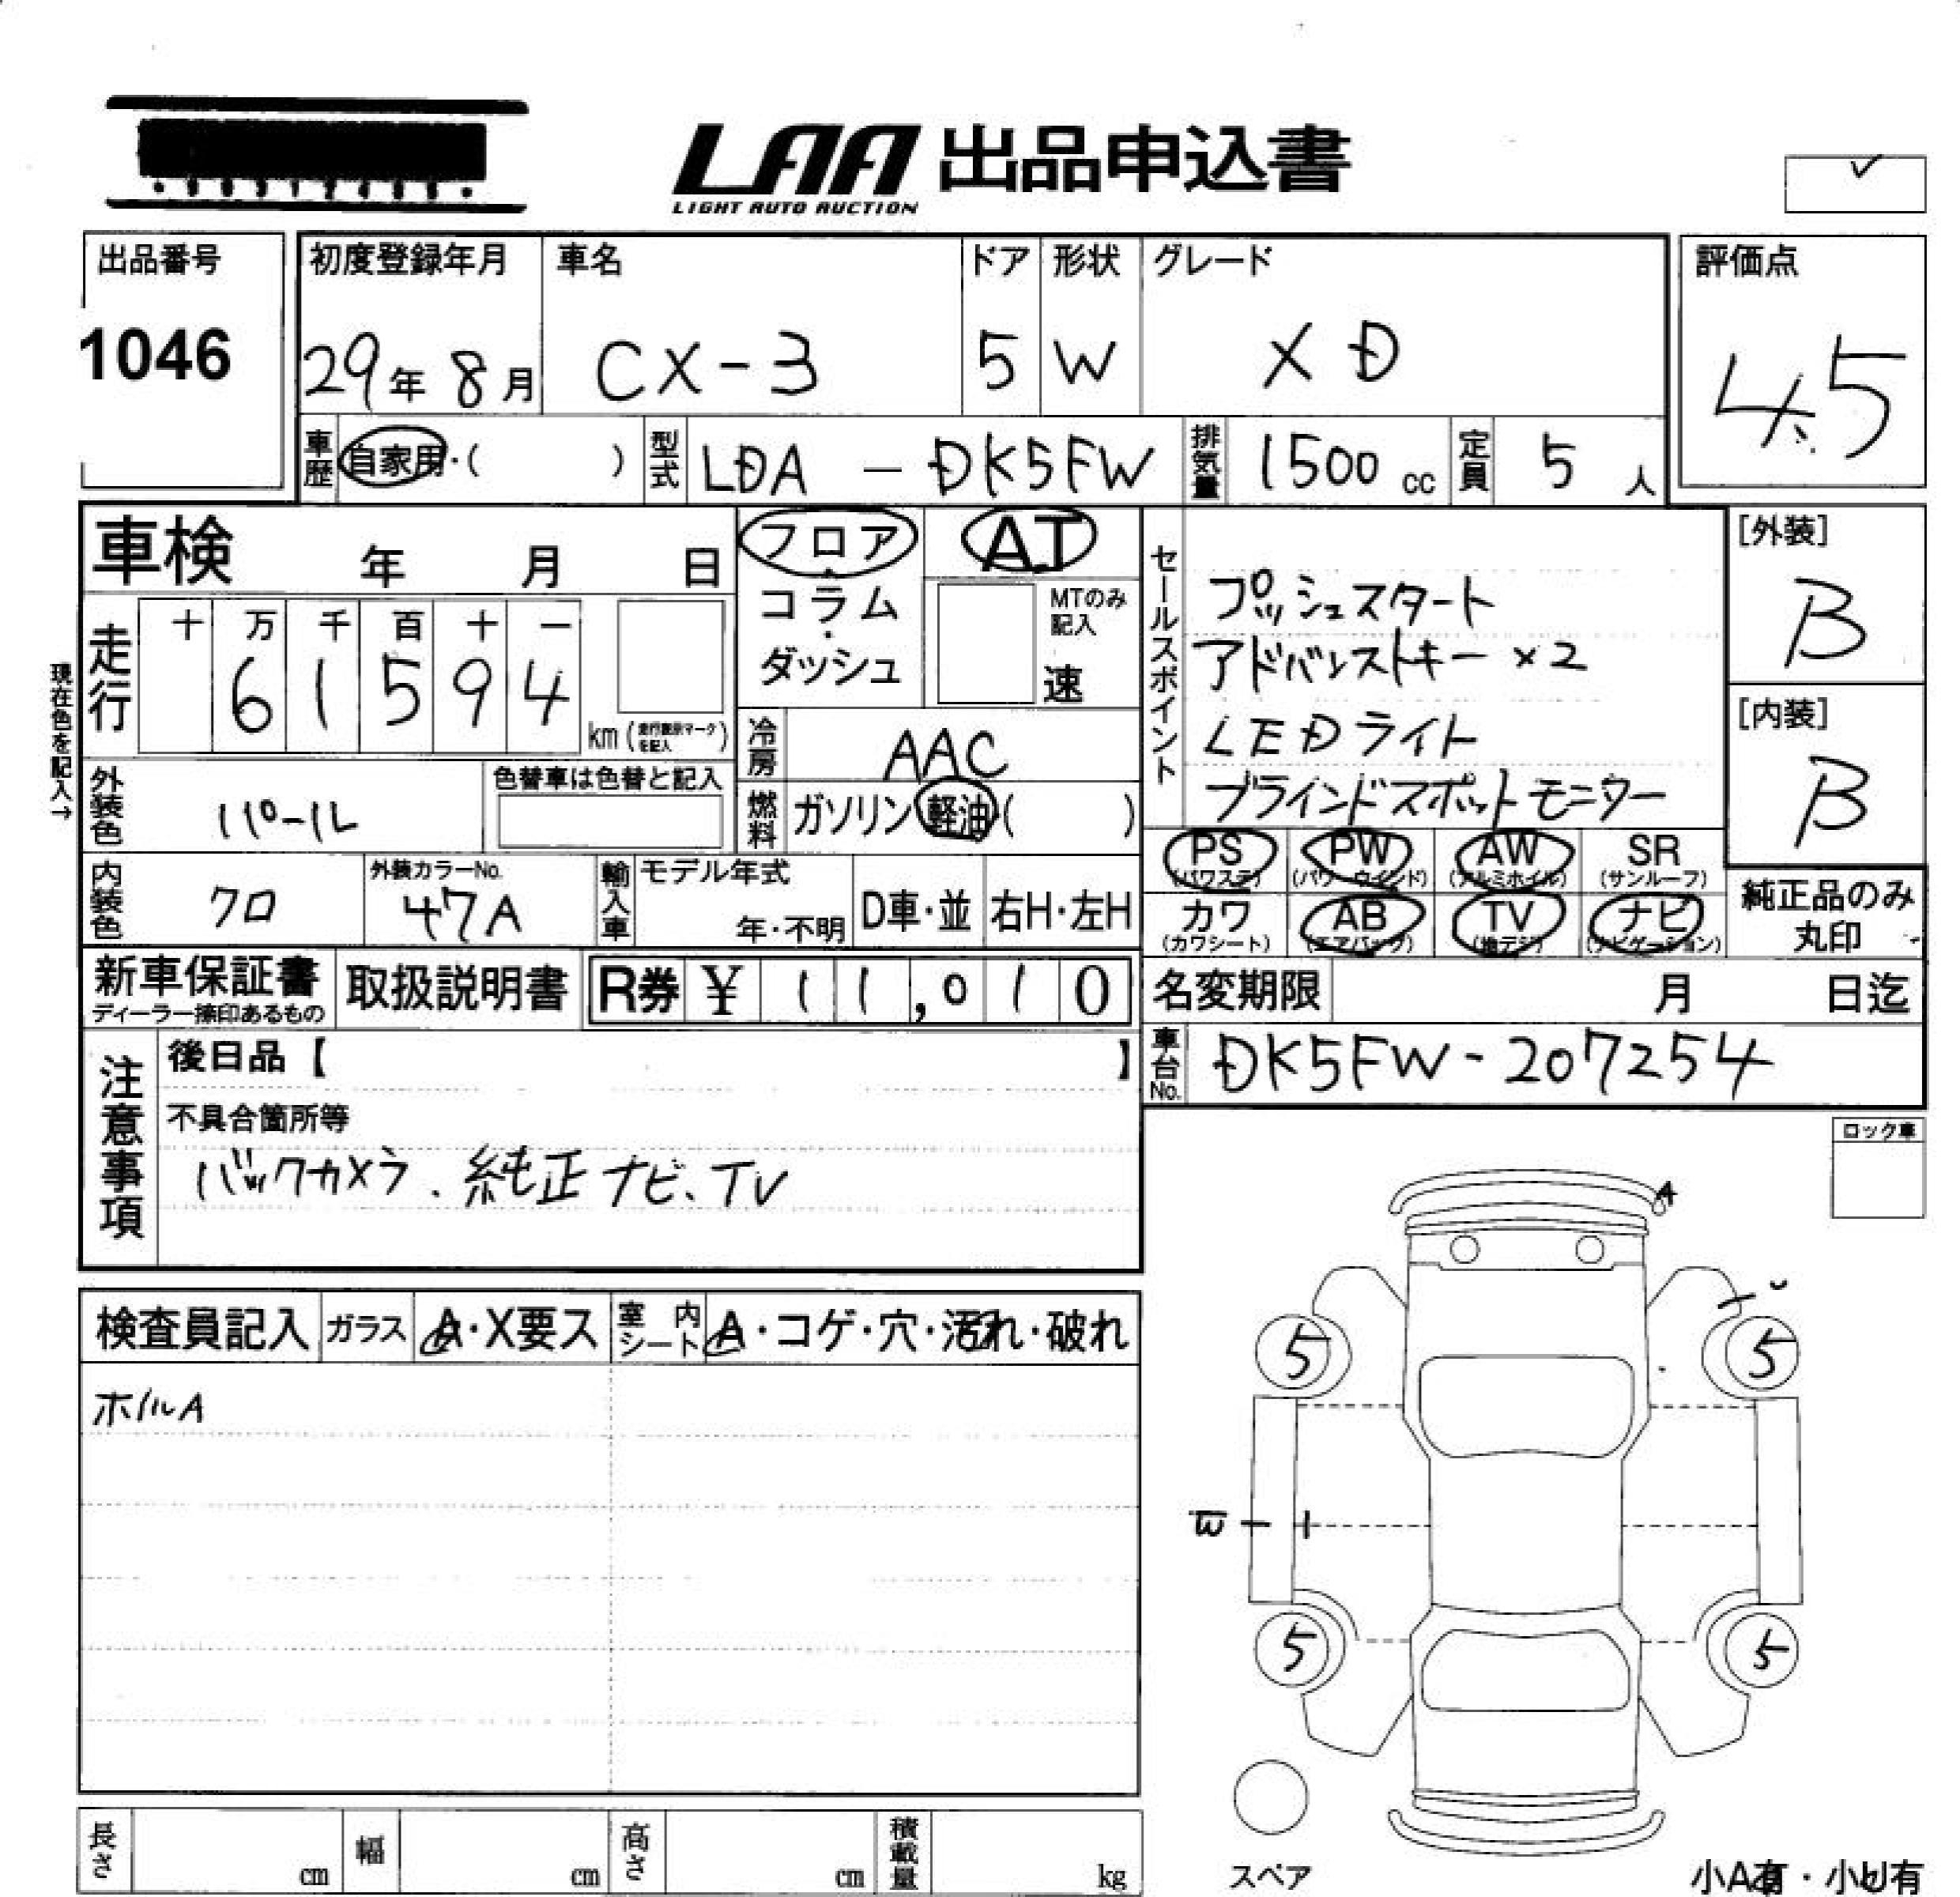 LAA 出品申込書
LIGHT AUTO AUCTION
出品番号
1046
初度登録年月 車名 ドア 形状 グレード
29年 8月 CX-3 5 W XD
評価点
4.5
車歴 自家用・( ) 型式 LDA - DK5FW 排気量 1500 cc 定員 5 人
車検 年 月 日
フロア・コラム・ダッシュ
AT
MTのみ記入
速
現在色を記入→
走行 十 万 千 百 十 一
6 1 5 9 4
km (走行表示マークを記入)
冷房 AAC
外装色 パール
色替車は色替と記入
燃料 ガソリン・軽油・( )
内装色 クロ
外装カラーNo.
47A
輸入車 モデル年式
年・不明 D車・並 右H・左H
セールスポイント
プッシュスタート
アドバンストキー ×2
LEDライト
ブラインドスポットモニター
[外装]
B
[内装]
B
PS (パワステ) PW (パワーウインド) AW (アルミホイル) SR (サンルーフ)
カワ (カワシート) AB (エアバッグ) TV (地デジ) ナビ (ナビゲーション)
純正品のみ
丸印
新車保証書
ディーラー捺印あるもの
取扱説明書 R券 ¥ 1 1,0 1 0
名変期限 月 日迄
車台No. DK5FW-207254
注意事項
後日品【 】
不具合箇所等
バックカメラ、純正ナビ、TV
ロック車
A
検査員記入 ガラス A・X要ス 室内シート A・コゲ・穴・汚れ・破れ
ホイルA
5 5
5 5
長さ cm 幅 cm 高さ cm 積載量 kg
スペア
小A有・小U有